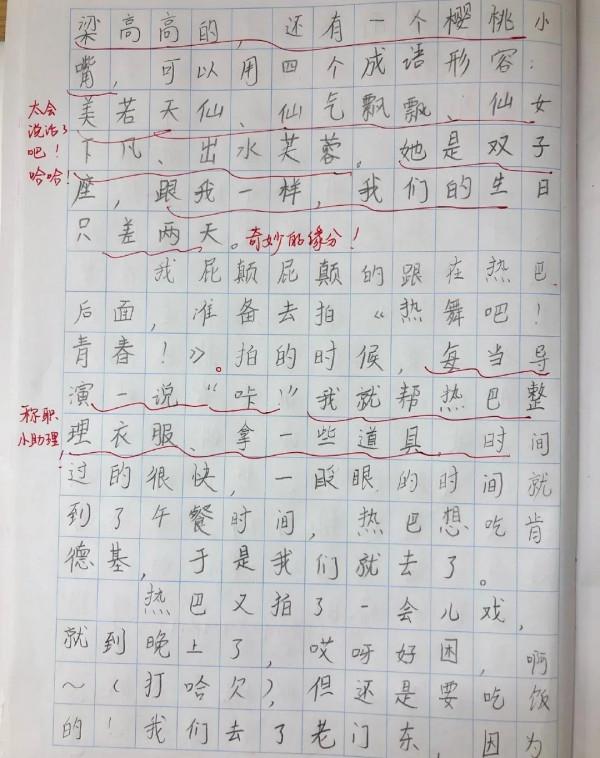 梁高高的，还有一个樱桃小
嘴，可以用四个成语形容：
美若天仙、仙气飘飘、仙女
下凡、出水芙蓉。她是双子
座，跟我一样，我们的生日
只差两天。奇妙的缘分！
太会
说话了
吧！
哈哈！
我屁颠屁颠的跟在热巴
后面，准备去拍《热舞吧！
青春！》。拍的时候，每当导
演一说“咔！”我就帮热巴整
理衣服、拿一些道具，时间
称职
小助理！
过的很快，一眨眼的时间就
到了午餐时间，热巴想吃肯
德基，于是我们就去了。
热巴又拍了一会儿戏，
就到晚上了，哎呀好困，啊
～（打哈欠），但还是要吃饭
的！我们去了老门东，因为